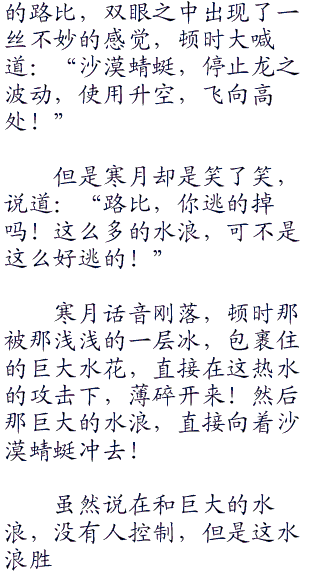 的路比，双眼之中出现了一
丝不妙的感觉，顿时大喊
道：“沙漠蜻蜓，停止龙之
波动，使用升空，飞向高
处！”
但是寒月却是笑了笑，
说道：“路比，你逃的掉
吗！这么多的水浪，可不是
这么好逃的！”
寒月话音刚落，顿时那
被那浅浅的一层冰，包裹住
的巨大水花，直接在这热水
的攻击下，薄碎开来！然后
那巨大的水浪，直接向着沙
漠蜻蜓冲去！
虽然说在和巨大的水
浪，没有人控制，但是这水
浪胜